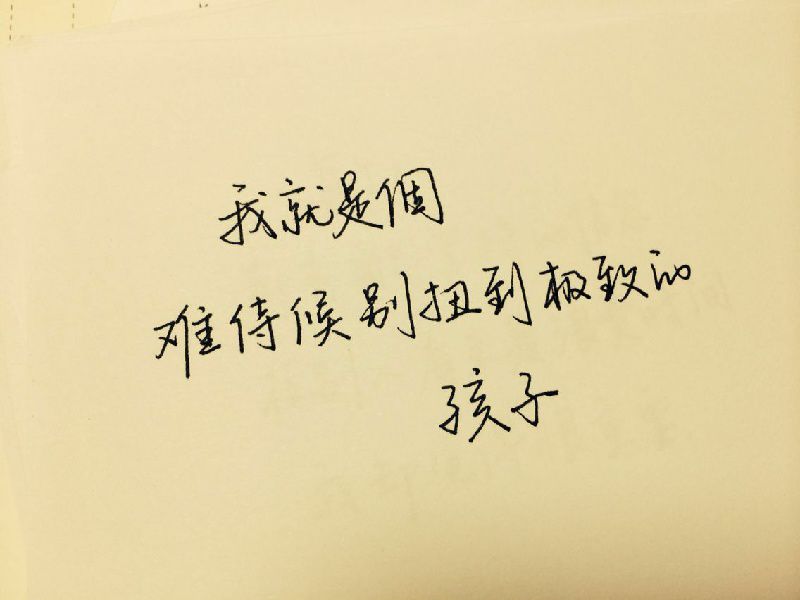 我就是個
难待候别扭到极致的
孩子